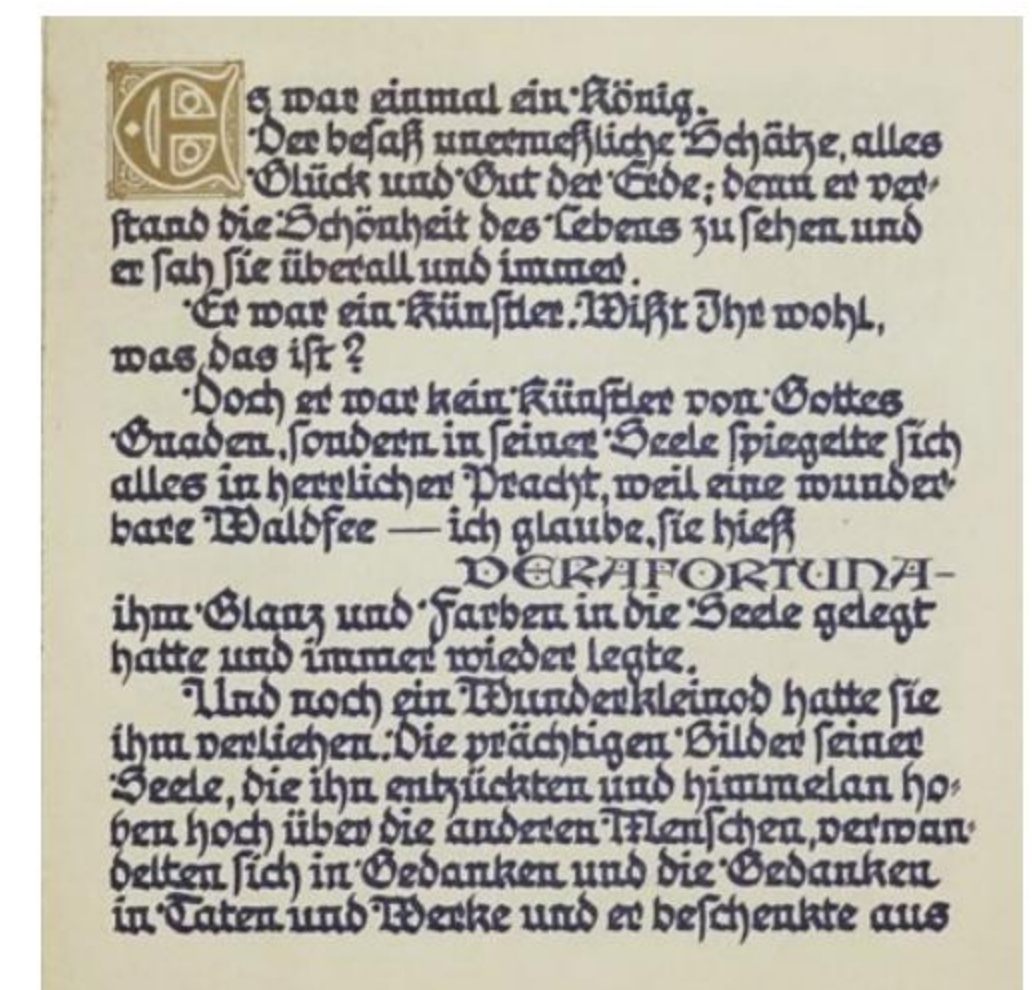 Es war einmal ein König.
Der besaß unermeßliche Schätze, alles
Glück und Gut der Erde; denn er ver-
stand die Schönheit des Lebens zu sehen und
er sah sie überall und immer.
Er war ein Künstler. Wißt Ihr wohl,
was das ist?
Doch er war kein Künstler von Gottes
Gnaden, sondern in seiner Seele spiegelte sich
alles in herrlicher Pracht, weil eine wunder-
bare Waldfee — ich glaube, sie hieß
VERA FORTUNA-
ihm Glanz und Farben in die Seele gelegt
hatte und immer wieder legte.
Und noch ein Wunderkleinod hatte sie
ihm verliehen. Die prächtigen Bilder seiner
Seele, die ihn entzückten und himmelan ho-
ben hoch über die anderen Menschen, verwan-
delten sich in Gedanken und die Gedanken
in Taten und Werke und er beschenkte aus